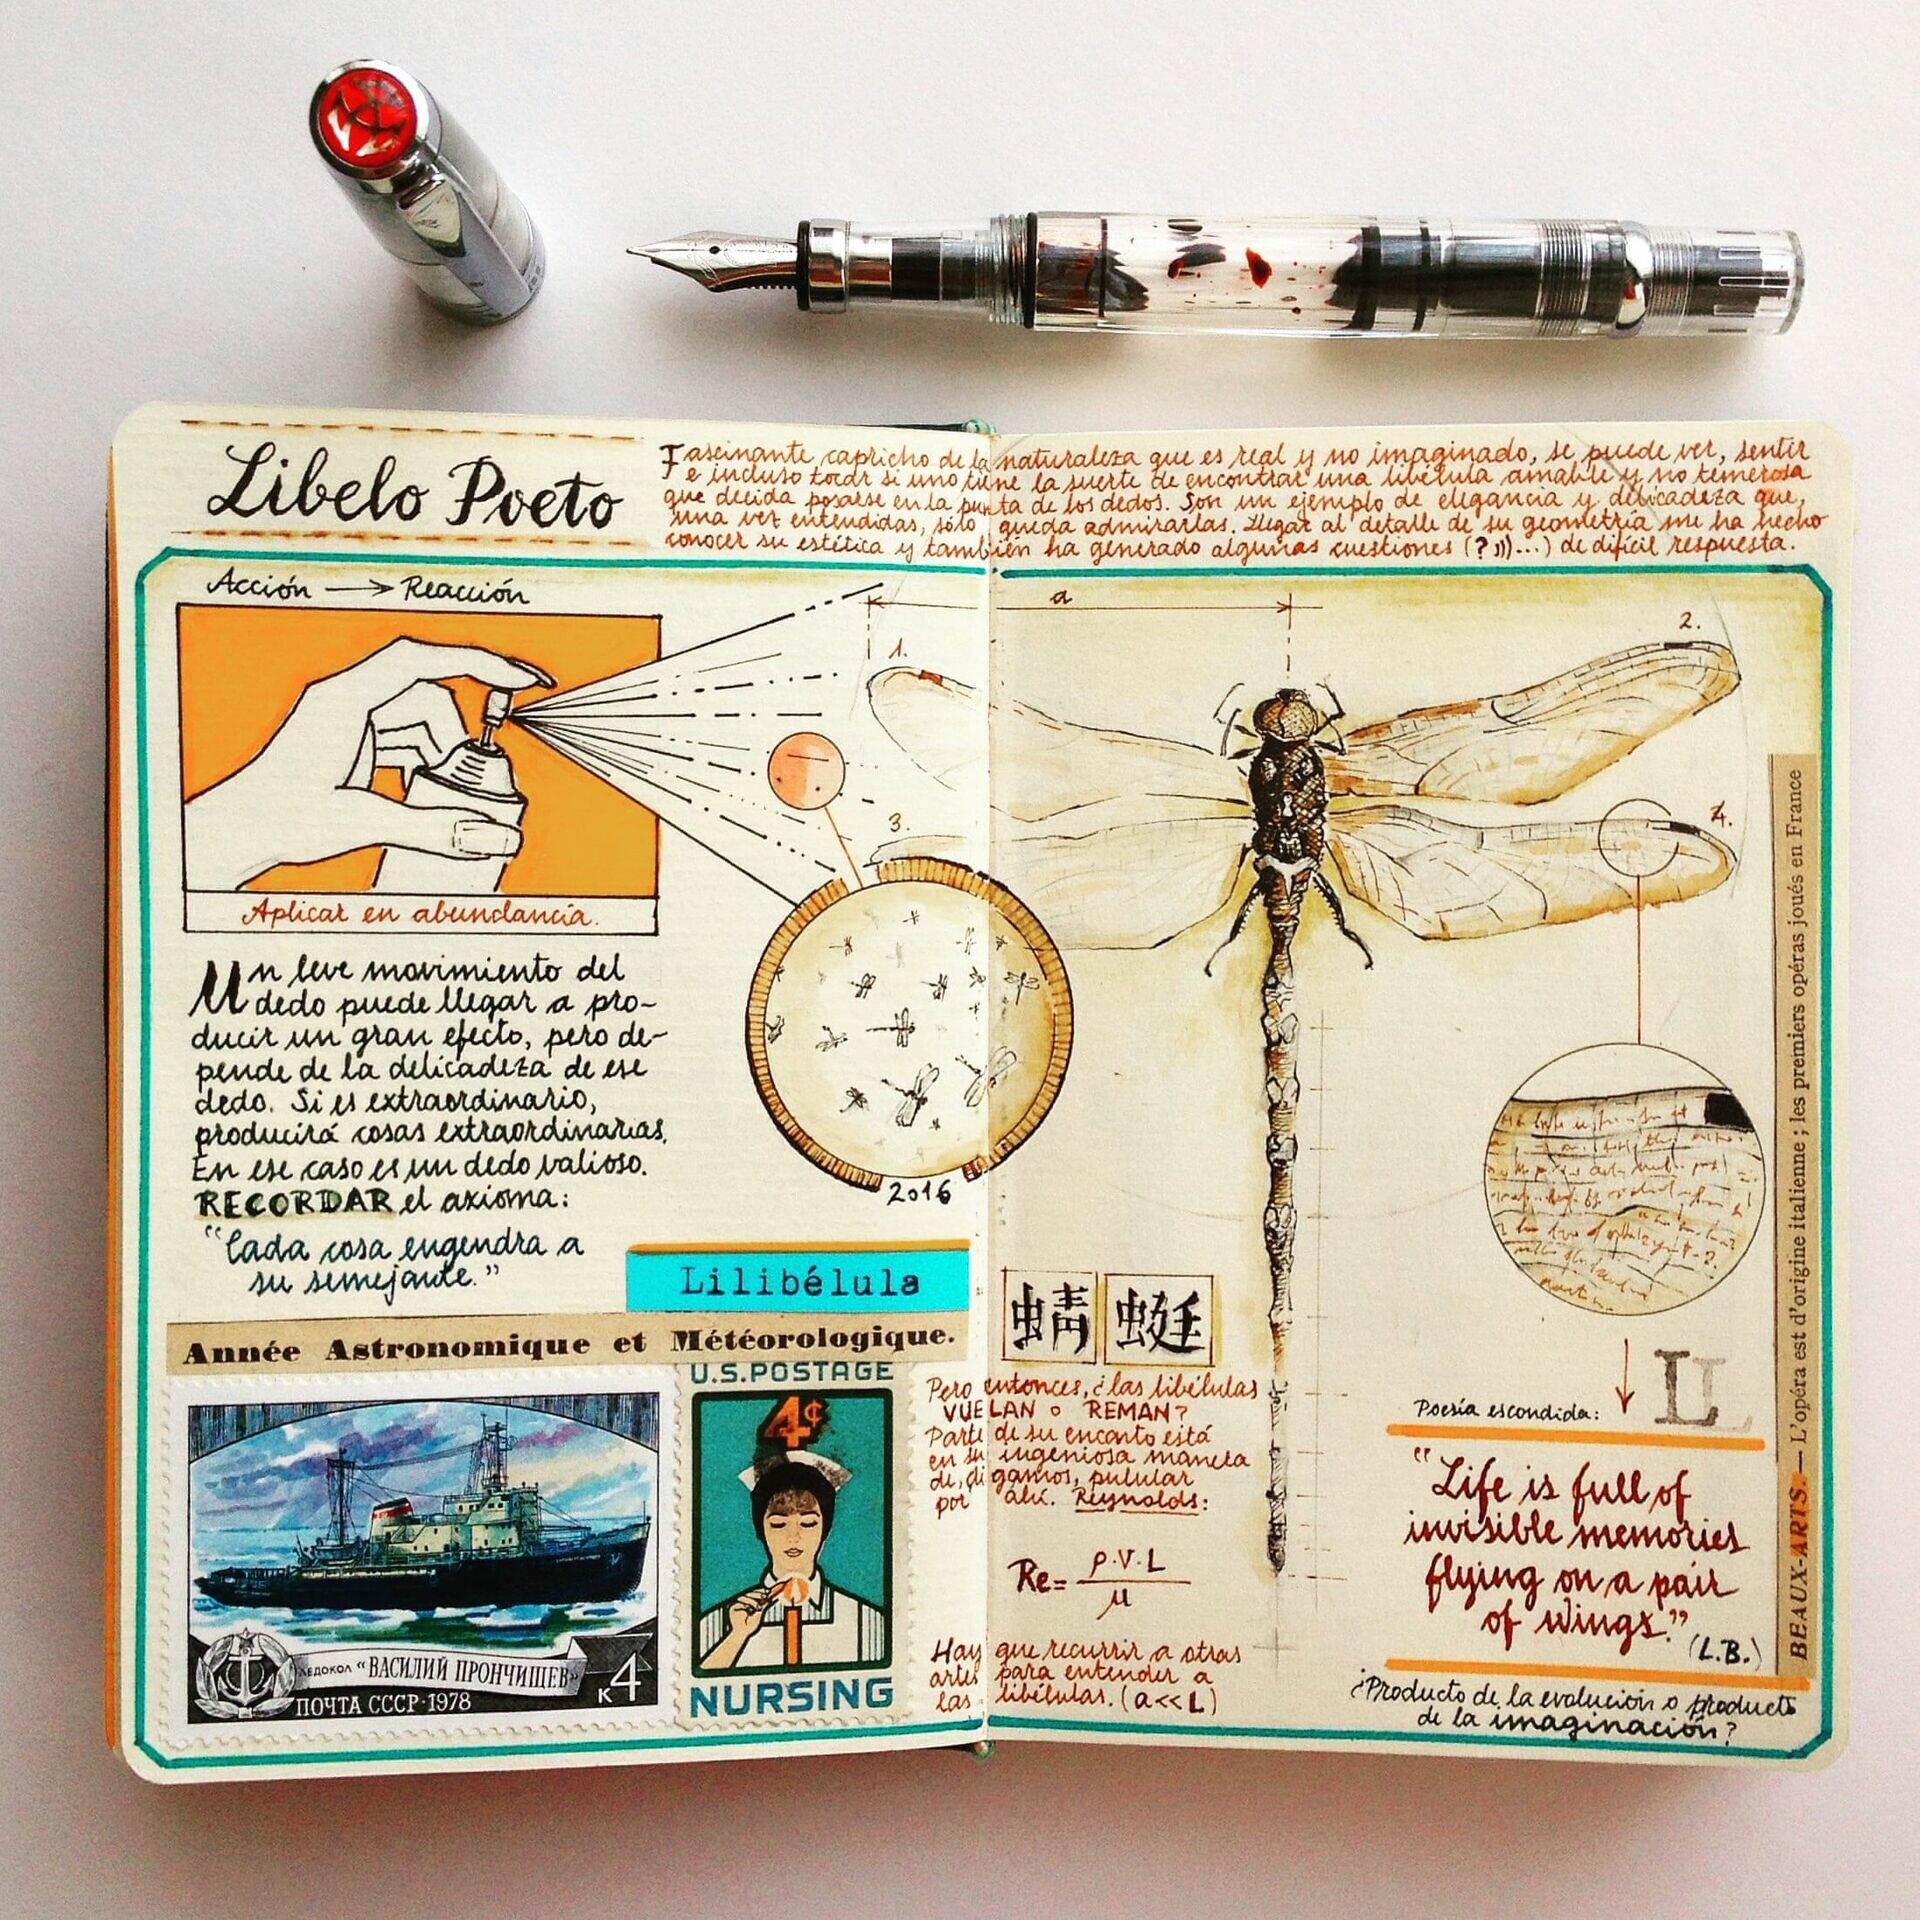 Libelo Poeto
Fascinante capricho de la naturaleza que es real y no imaginado, se puede ver, sentir
e incluso tocar si uno tiene la suerte de encontrar una libélula amable y no temerosa
que decida posarse en la punta de los dedos. Son un ejemplo de elegancia y delicadeza que,
una vez entendidas, sólo queda admirarlas. Llegar al detalle de su geometría me ha hecho
conocer su estética y también ha generado algunas cuestiones (?)))...) de difícil respuesta.
Acción → Reacción
Aplicar en abundancia.
Un leve movimiento del
dedo puede llegar a pro-
ducir un gran efecto, pero de-
pende de la delicadeza de ese
dedo. Si es extraordinario,
producirá cosas extraordinarias.
En ese caso es un dedo valioso.
RECORDAR el axioma:
"Cada cosa engendra a
su semejante."
2016
Lilibélula
Année Astronomique et Météorologique.
ЛЕДОКОЛ «ВАСИЛИЙ ПРОНЧИЩЕВ»
ПОЧТА СССР·1978
К4
U.S.POSTAGE
4¢
NURSING
a
1.
2.
3.
4.
蜻蜓
Pero entonces, ¿las libélulas
VUELAN o REMAN?
Parte de su encanto está
en su ingeniosa manera
de, digamos, pulular
por ahí. Reynolds:
Re= ρ·V·L
μ
Hay que recurrir a otras
artes para entender a
las libélulas. (a<<L)
Poesía escondida:
L
"Life is full of
invisible memories
flying on a pair
of wings."
(L.B.)
¿Producto de la evolución o producto
de la imaginación?
BEAUX-ARTS. — L'opéra est d'origine italienne ; les premiers opéras joués en France